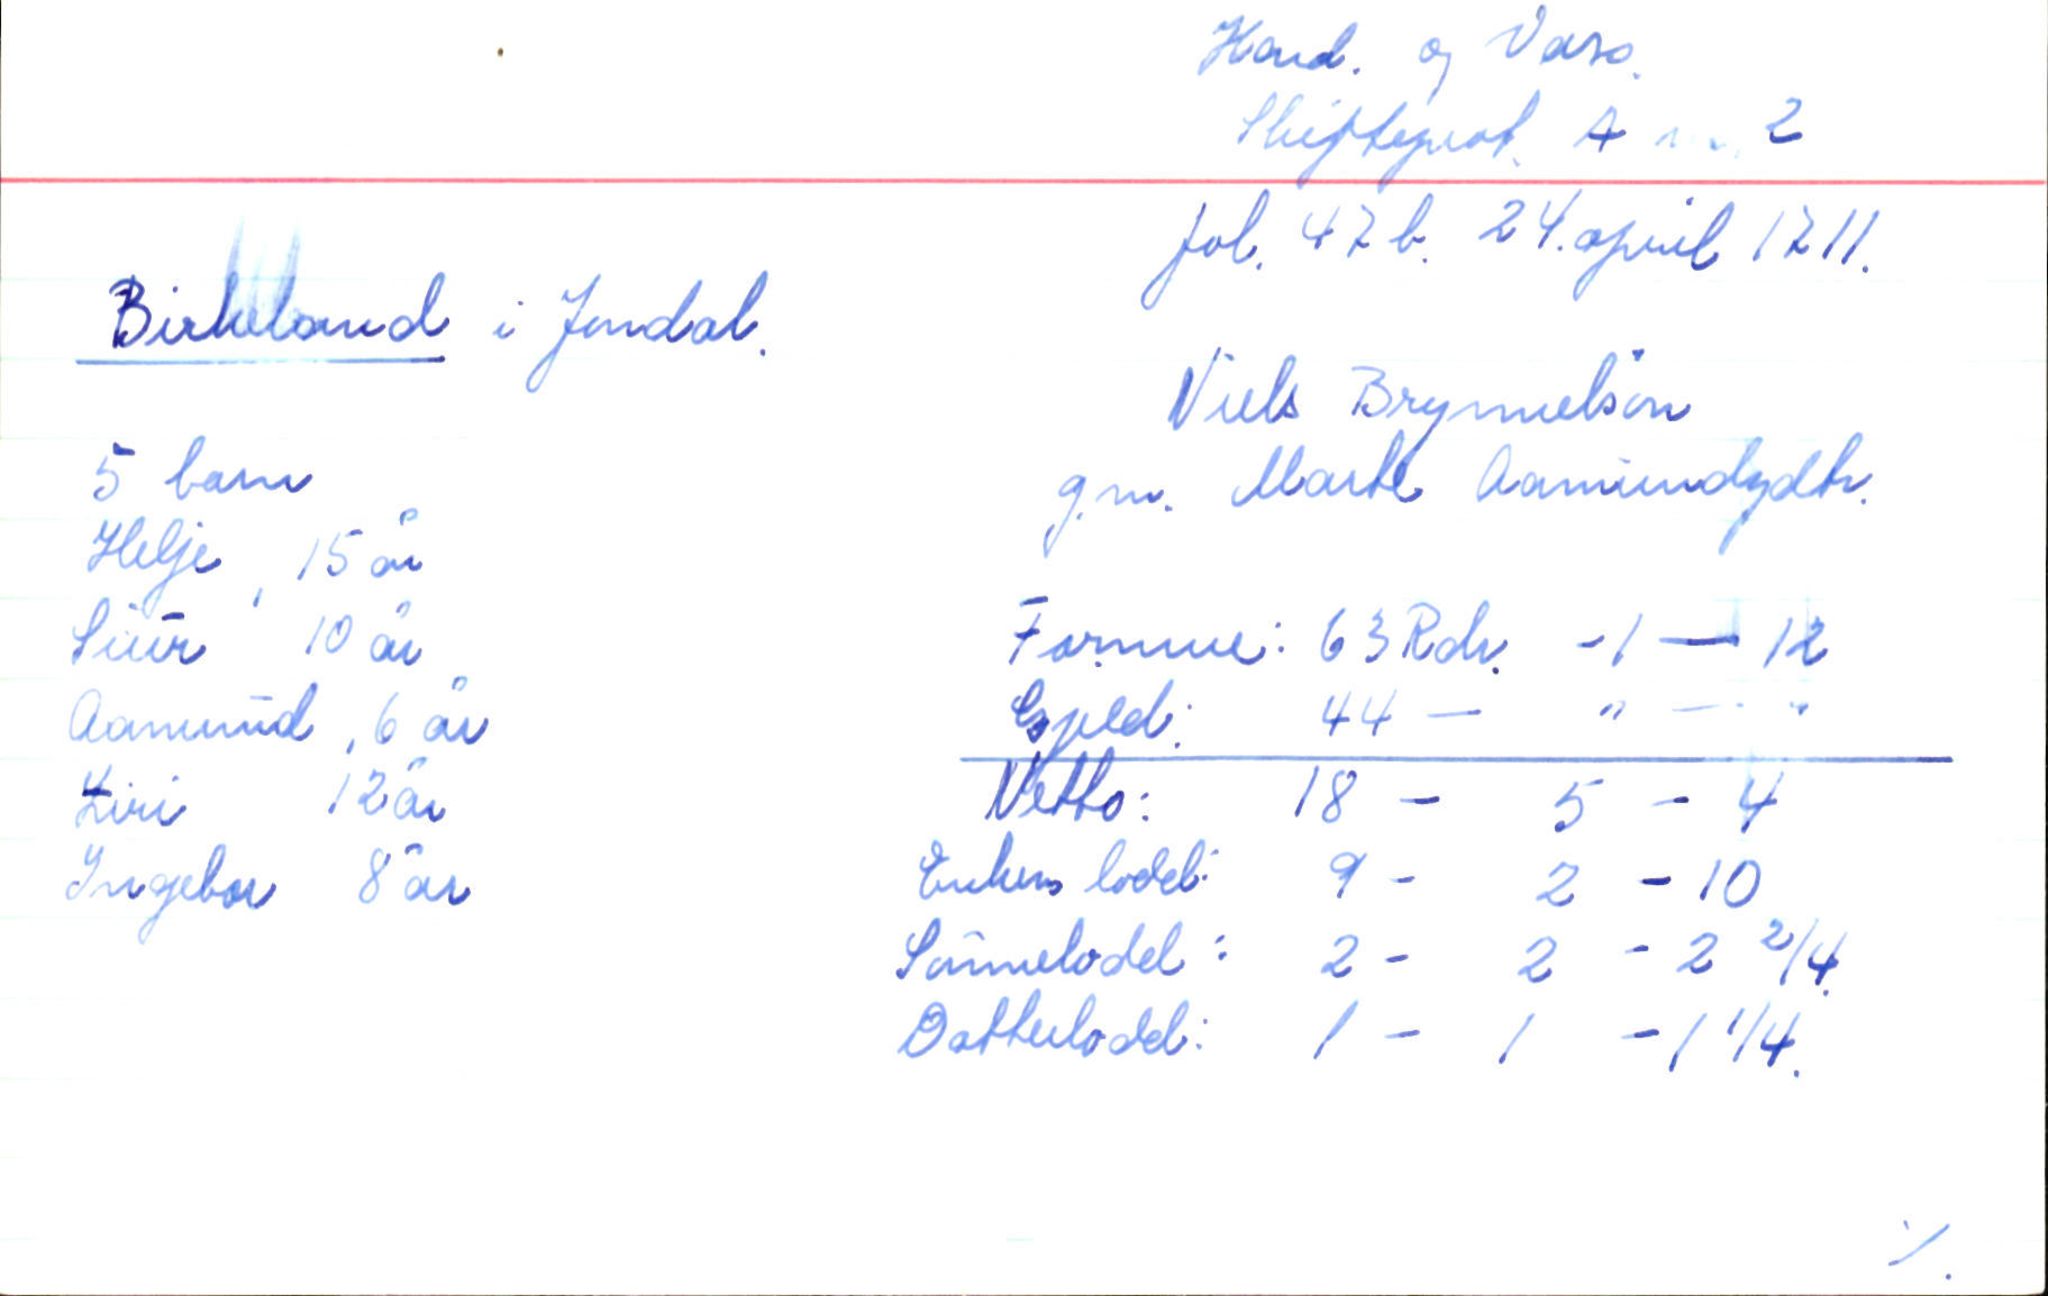 Hard. og Voss.
Skifteprot. A nr. 2
fol. 47 b. 24. april 1711.
Birkeland i Jondal.
Niels Brynnelsön
g.m. Marte Aamundsdtr.
5 barn
Helje, 15 år
Siur 10 år
Aamund, 6 år
Ziri 12 år
Ingebor 8 år
Formue: 63 Rdr. - 1 — 12
Gjeld: 44 — " — "
Netto: 18 - 5 - 4
Enkens lodd: 9 - 2 - 10
Sönnelodd: 2 - 2 - 2 2/4.
Datterlodd: 1 - 1 - 1 1/4.